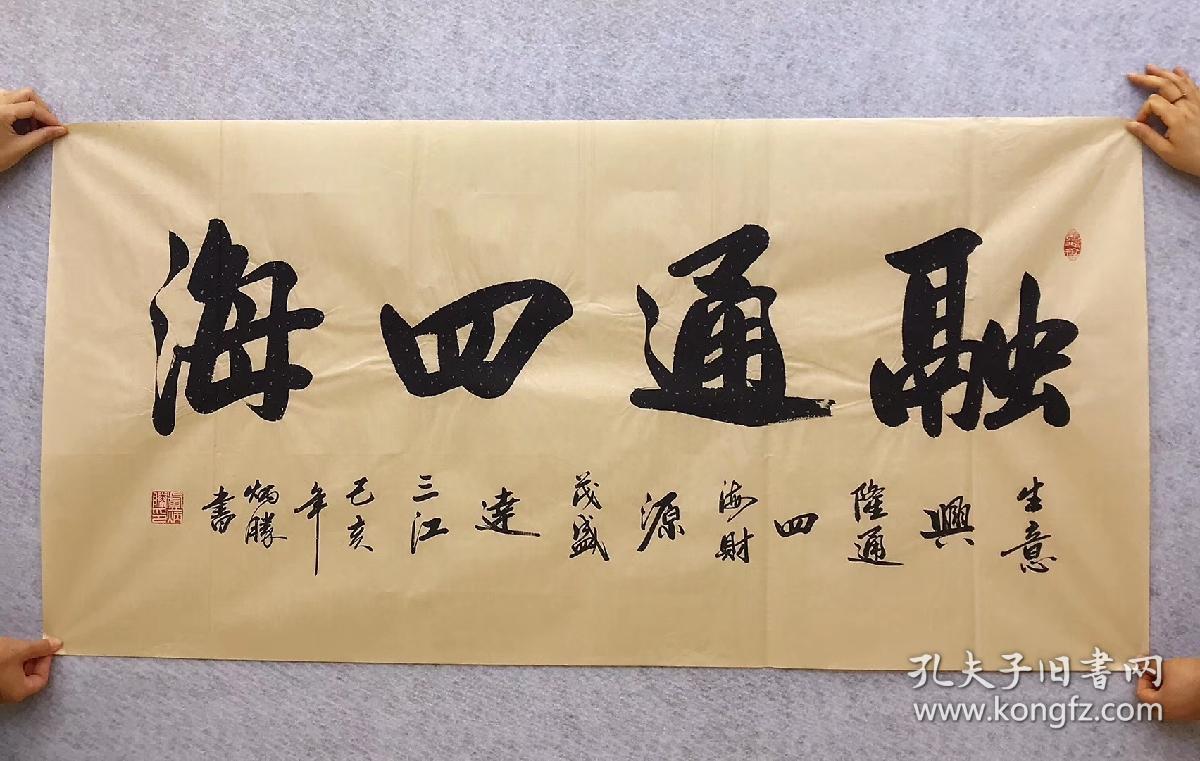 融通四海
生意
興
隆通
四
海財
源
茂盛
達
三江
己亥
年
炳勝
書
孔夫子旧书网
www.kongfz.com